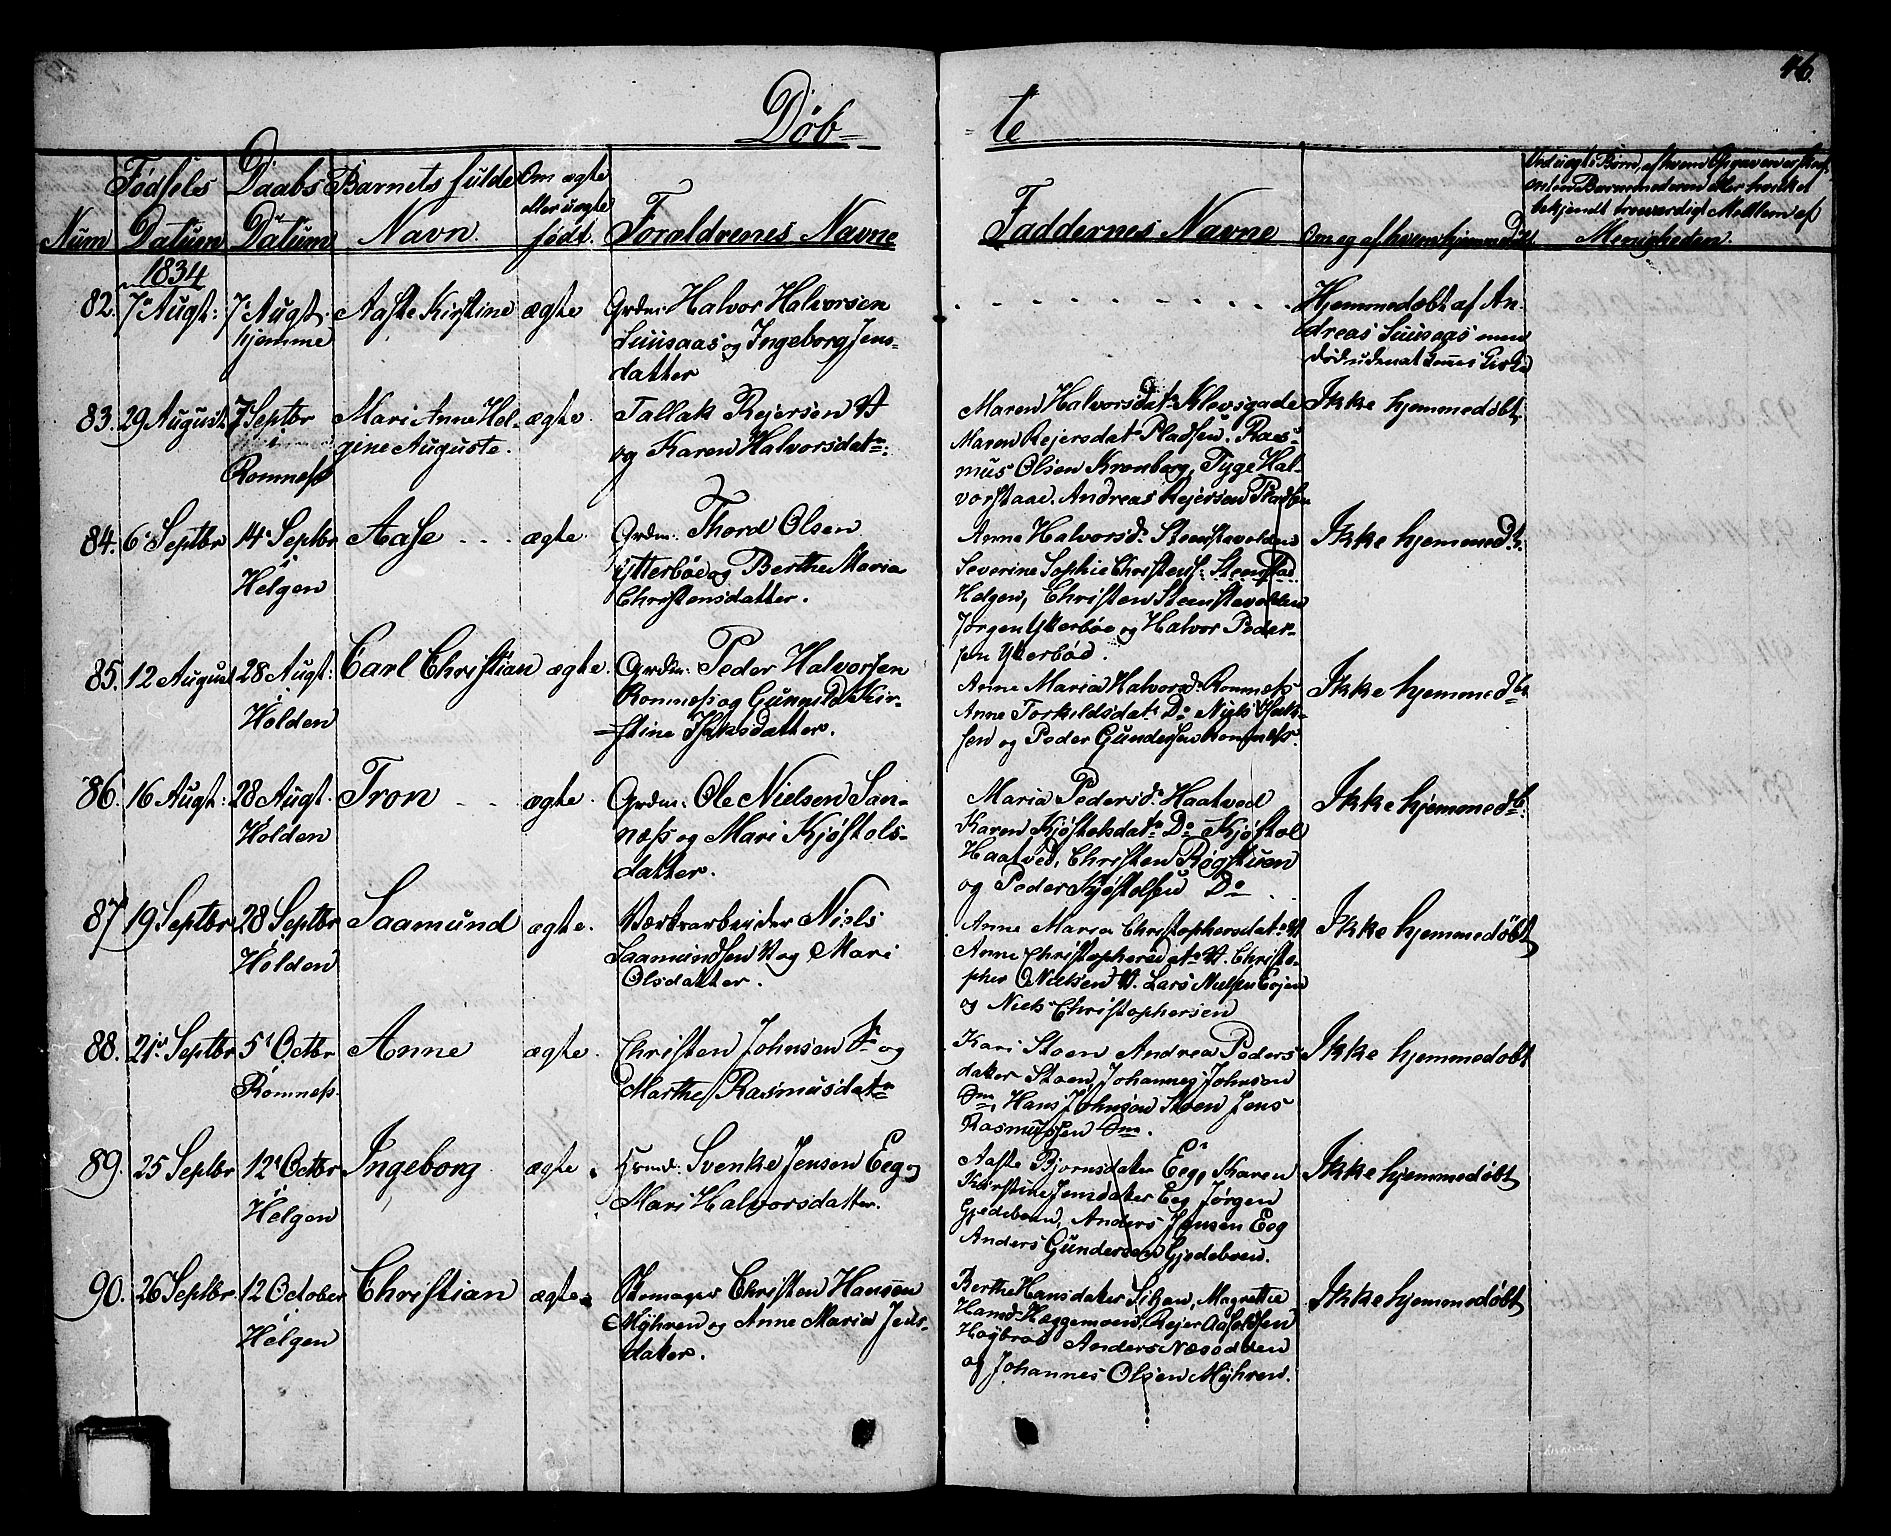 46.
Døb-
-te
Num
Fødsels Datum
Daabs Datum
Barnets fulde Navn.
Om ægte eller uægte født.
Forældrenes Navne
Faddernes Navne
Om og af hvem hjemmedøbt
Menigheden.
1834
82. 7 Augt: 7 Augt. Aaste Kirstine ægte Grdm: Halvor Halvorsen
hjemme Suusaas og Ingeborg Jens-
datter
Hjemmedøbt af An-
dreas Suusaas men
83. 29 August 7 Septbr Mari Anne Hel- ægte. Tallak Rejersen
gine Auguste. og Karen Halvorsdatr:
Romness
Maren Halvorsdatr Klevsgade
Maren Rejersdatr Pladsen. Ras-
mus Olsen Kronberg, Tyge Hal-
vorstaae. Andreas Rejersen Pladsen
Ikke hjemmedøbt.
84. 6 Septbr 14 Septbr Aase - - - ægte. Grdm: Thord Olsen
Helgen Ytterbøe og Berthe Maria
Christensdatter.
Anne Halvorsd: Steenstavolden
Severine Sophie Christens: Steenstad
Helgen, Christen Steenstavolden
Jørgen Ytterbøe og Halvor Peder-
sen Ytterbød.
Ikke hjemmedt.
85. 12 August 28 Augt: Carl Christian ægte. Grdm: Peder Halvorsen
Holden Romness og Gunnild Kir-
stine Isaksdatter.
Anne Maria Halvorsd: Romness
Anne Torkildsdatr Do Niels Isak-
sen og Peder Gundersen Romness.
Ikke hjemmedb
86. 16 Augt: 28 Augt. Tron - - ægte. Grdm: Ole Nielsen San-
Holden næss og Mari Kjøstols-
datter.
Maria Pedersdr Haatved
Karen Kjøstolsdatr Do Kjøstol
Haatved, Christen Røgstuen
og Peder Kjøstolsen Do
Ikke hjemmedb.
87. 19 Septbr 28 Septbr Saamund ægte. Værksarbeider Niels
Holden Saamundsen V og Mari
Olsdatter.
Anne Maria Christophersdatr V
Anne Christophersdatr V. Christo-
pher Nielsen V. Lars Nielsen Eojen
og Niels Christophersen
Ikke hjemmedøbt
88. 21 Septbr 5 Octbr Anne ægte. Christen Johnsen og
Romness. Marthe Rasmusdatr
Kari Stoen Andrea Peders
datter Stoen, Johannes Johnsen
Hans Johnsen Stoen Jens
Rasmussen
Ikke hjemmedøbt
89. 25 Septbr 12 Octbr Ingeborg ægte. Svenke Jensen Eeg og
Helgen Mari Halvorsdatter.
Aaste Bjornsdatter Eeg, Karen
Kirstine Jensdatter Eeg Jørgen
Gjedeboen, Anders Jensen Eeg
Anders Gundersen Gjedeboen.
Ikke hjemmedøbt
90. 26 Septbr 12 October Christian ægte. Skomager Christen Hansen
Helgen Myhren og Anne Maria Jens-
datter.
Berthe Hansdatter Sisjan, Magrethe
Hansd: Heggemoen, Rejer Aaselsen
Høybrød Anders Næsødden
og Johannes Olsen Myhren.
Ikke hjemmedøbt